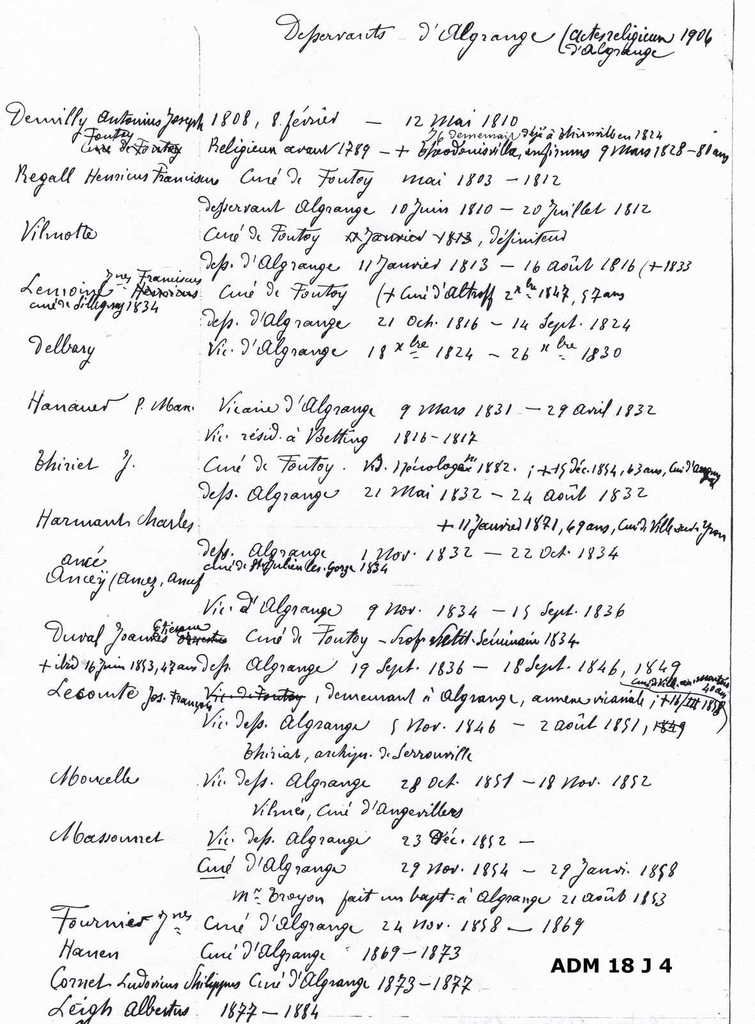 Desservants d'Algrange (actes religieux 1906
d'Algrange
Demilly Antonius Joseph 1808, 8 février — 12 Mai 1810
Fontoy déjà à Thionville en 1824
curé de Fontoy Religieux avant 1789 — + infirmus 9 Mars 1828 — 80 ans
Regall Henricus Franciscus Curé de Fontoy mai 1803 — 1812
desservant Algrange 10 Juin 1810 — 20 Juillet 1812
Vilmotte Curé de Fontoy 11 Janvier 1813, définiteur
dess. d'Algrange 11 Janvier 1813 — 16 août 1816 (+ 1833
Franciscus
Lemoine Henricus Curé de Fontoy (+ Curé d'Altroff 2 xbre 1847, 57 ans
curé de Silligny 1834
dess. d'Algrange 21 Oct. 1816 — 14 Sept. 1824
Delbary Vic. d'Algrange 18 xbre 1824 — 26 xbre 1830
Hanauer P. Max. Vicaire d'Algrange 9 Mars 1831 — 29 avril 1832
Vic. résid. à Betting 1816-1817
Thiriet J. Curé de Fontoy. 1882. ; + 15 Déc. 1854, 63 ans, Curé
dess. Algrange 21 Mai 1832 — 24 Août 1832
Harmant Charles + 11 Janvier 1871, 69 ans, Curé de Ville sur Yron
dess. Algrange 1 Nov. 1832 — 22 Oct. 1834
ancé curé de St Julien les Gorze 1834
Anceÿ (Ancez, Ancuf
Vic. d'Algrange 9 Nov. 1834 — 15 Sept. 1836
Etienne
Duval Joannes Curé de Fontoy — Prof. Petit Séminaire 1834
+ ibid 16 Juin 1853, 47 ans dess. Algrange 19 Sept. 1836 — 18 Sept. 1846, 1849
40 ans
Lecomte Jos. François Vic. de Fontoy, demeurant à Algrange, annexe vicariale ; + 16/III 1858
Vic. dess. Algrange 5 Nov. 1846 — 2 août 1851, 1849
Thiriat, archipr. de Serrouville
Mourelle Vic. dess. Algrange 28 Oct. 1851 — 18 Nov. 1852
Vilmés, Curé d'Angevillers
Massonnet Vic. dess. Algrange 23 Déc. 1852 —
Curé d'Algrange 29 Nov. 1854 — 29 Janvi. 1858
Mr Troyon fait un bapt. à Algrange 21 août 1853
Fournier Curé d'Algrange 24 Nov. 1858 — 1869
Hanen Curé d'Algrange 1869 — 1873
Cornet Ludovicus Philippus Curé d'Algrange 1873 — 1877
Leigh Albertus 1877 — 1884
ADM 18 J 4